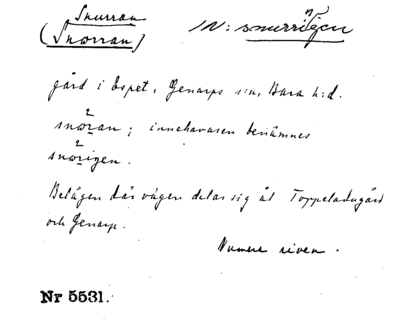 Snurran
(Snorran)
IN: snurrigen
gård i Espet, Genarps s:n, Bara h:d.
snọran; innehavaren benämnes
snọrigen.
Belägen där vägen delar sig åt Toppeladugård
och Genarp.
Numera riven.
Nr 5531.